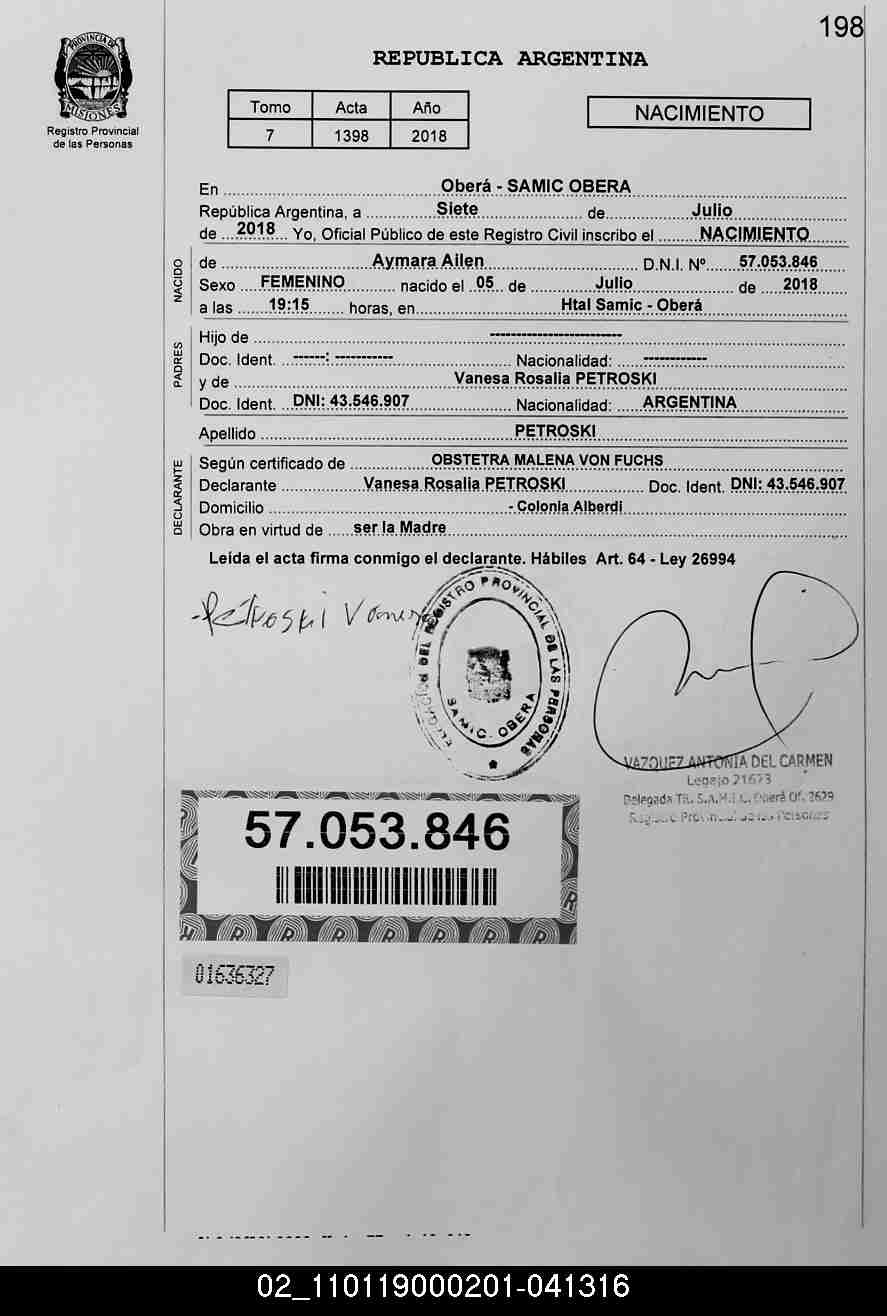 198
PROVINCIA DE
MISIONES
Registro Provincial
de las Personas
REPUBLICA ARGENTINA
Tomo Acta Año
7 1398 2018
NACIMIENTO
En Oberá - SAMIC OBERA
República Argentina, a Siete de Julio
de 2018 Yo, Oficial Público de este Registro Civil inscribo el NACIMIENTO
NACIDO
de Aymara Ailen D.N.I. Nº 57.053.846
Sexo FEMENINO nacido el 05 de Julio de 2018
a las 19:15 horas, en Htal Samic - Oberá
PADRES
Hijo de -------------------------
Doc. Ident. ------: ----------- Nacionalidad: ------------
y de Vanesa Rosalia PETROSKI
Doc. Ident. DNI: 43.546.907 Nacionalidad: ARGENTINA
Apellido PETROSKI
DECLARANTE
Según certificado de OBSTETRA MALENA VON FUCHS
Declarante Vanesa Rosalia PETROSKI Doc. Ident. DNI: 43.546.907
Domicilio - Colonia Alberdi
Obra en virtud de ser la Madre
Leída el acta firma conmigo el declarante. Hábiles Art. 64 - Ley 26994
Petroski Vanesa
DEL REGISTRO PROVINCIAL DE LAS PERSONAS
SAMIC. OBERA
VAZQUEZ ANTONIA DEL CARMEN
Legajo 21673
Delegada Tit. S.A.M.I.C. Oberá Of. 2629
Registro Provincial de las Personas
57.053.846
01636327
02_110119000201-041316